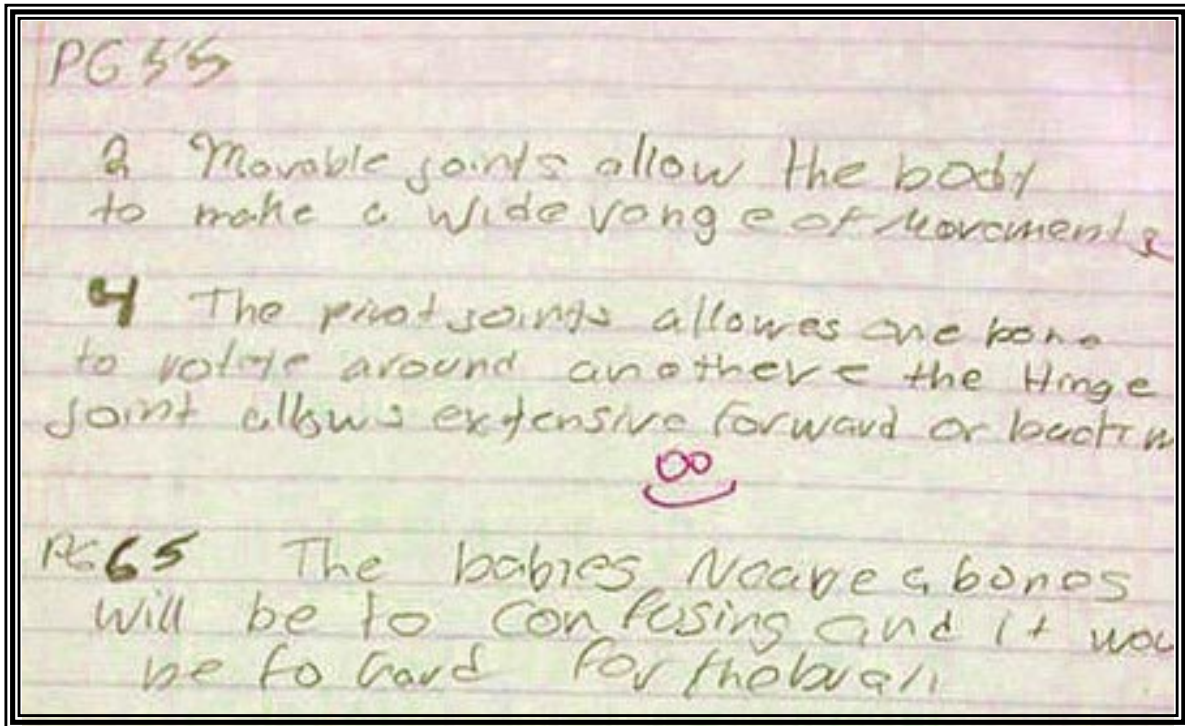 PG 55
2 Movable joints allow the body
to make a wide range of Movements
4 The pivot joints allowes one bone
to rotate around anothere the Hinge
joint allows extensive forward or
PG 65 The babies bones
will be to confusing and it wou
be to hard for the